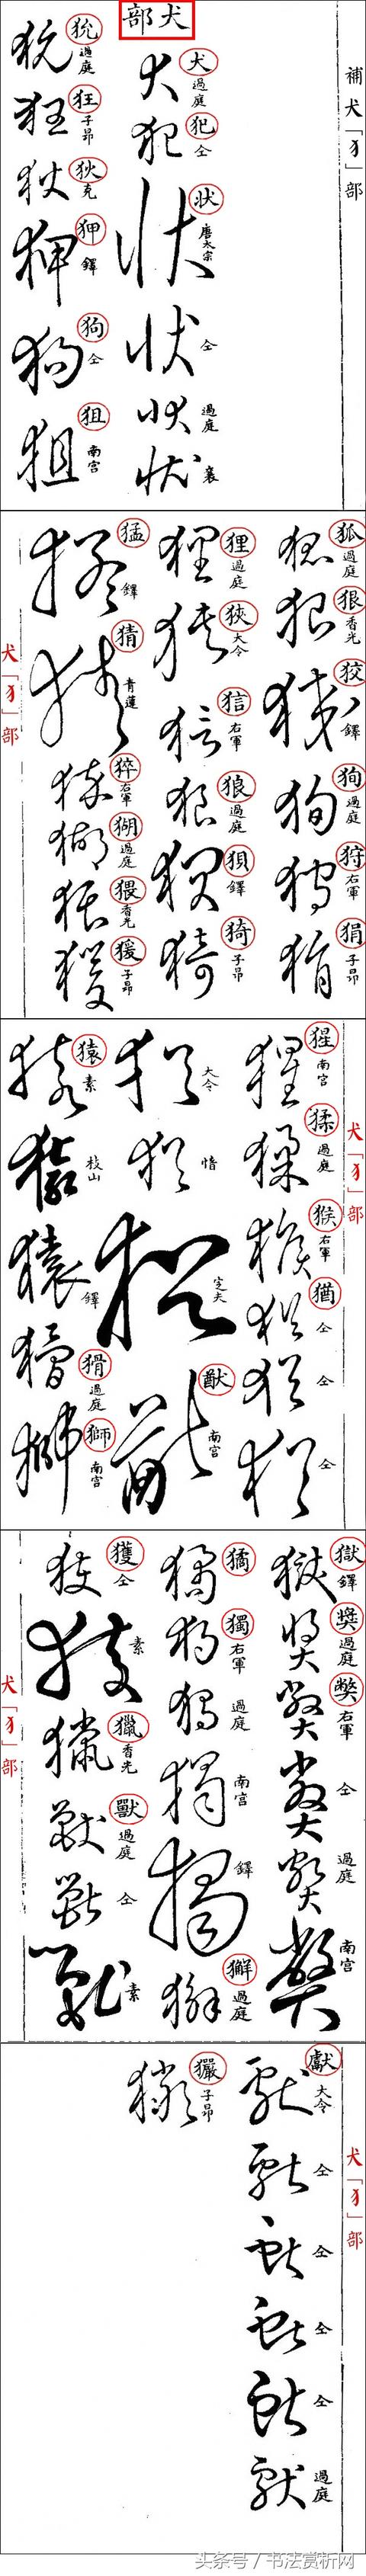 補犬「犭」部
犬部
犬 過庭
犯 仝
状 唐太宗
仝
過庭
襄
狁 過庭
狂 子昂
狄 克
狎 鐸
狗 仝
狙 南宮
狐 過庭
狠 香光
狡 鐸
狥 過庭
狩 右軍
狷 子昂
狸 過庭
狹 大令
狺 右軍
狼 過庭
狽 鐸
猗 子昂
猛 鐸
猜 青蓮
猝 右軍
猢 過庭
猥 香光
猨 子昂
犬「犭」部
犬「犭」部
猩 南宮
猱 過庭
猴 右軍
猶 仝
仝
仝
大令
惜
定夫
猷 南宮
猿 素
枝山
鐸
猾 過庭
獅 南宮
獄 鐸
獎 過庭
獘 右軍
仝
過庭
南宮
獝
獨 右軍
過庭
南宮
鐸
獬 過庭
獲 仝
素
獵 香光
獸 過庭
仝
素
犬「犭」部
犬「犭」部
獻 大令
仝
仝
仝
仝
過庭
玁 子昂
头条号 / 书法赏析网